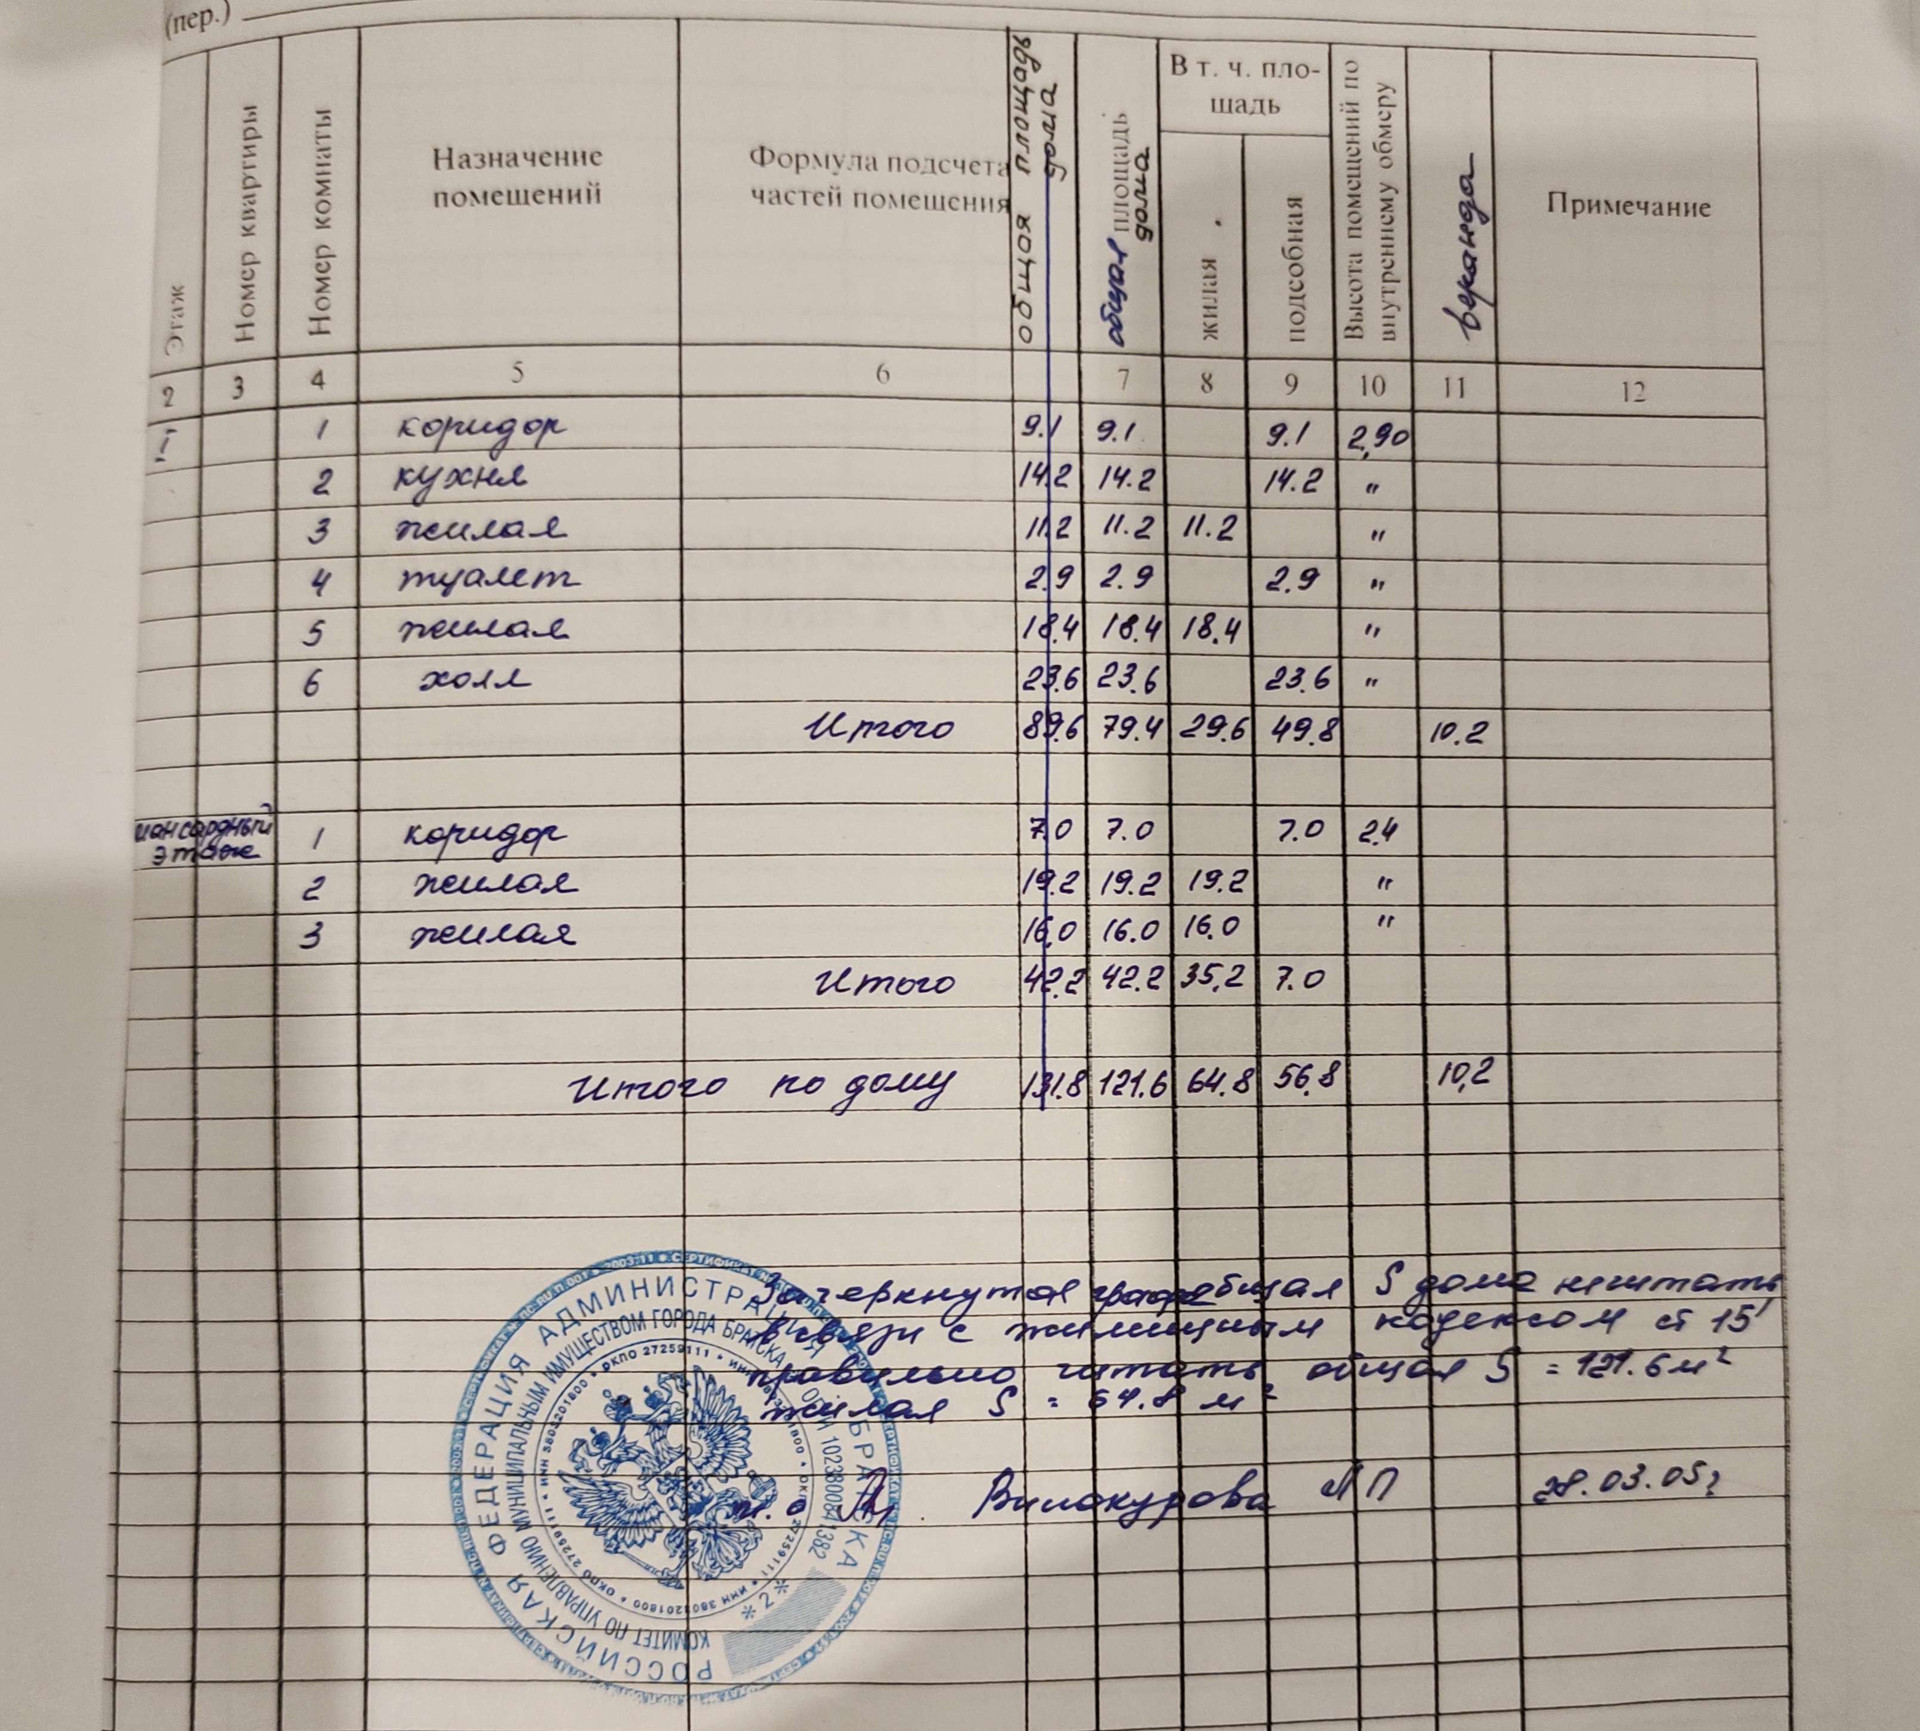 (пер.)
Этаж
Номер квартиры
Номер комнаты
Назначение помещений
Формула подсчета частей помещения
общая площадь дома
общая площадь дома
В т. ч. пло-
щадь
жилая
подсобная
Высота помещений по внутреннему обмеру
веранда
Примечание
2 3 4 5 6 7 8 9 10 11 12
I 1 коридор 9.1 9.1 9.1 2,90
2 кухня 14.2 14.2 14.2 "
3 жилая 11.2 11.2 11.2 "
4 туалет 2.9 2.9 2.9 "
5 жилая 18.4 18.4 18.4 "
6 холл 23.6 23.6 23.6 "
Итого 89.6 79.4 29.6 49.8 10.2
мансардный
этаж 1 коридор 7.0 7.0 7.0 2.4
2 жилая 19.2 19.2 19.2 "
3 жилая 16.0 16.0 16.0 "
Итого 42.2 42.2 35,2 7.0
Итого по дому 131.8 121.6 64.8 56,8 10,2
Зачеркнутая графа общая S дома не читать
в связи с жилищным кодексом ст 15
правильно читать общая S = 121.6 м²
жилая S = 64.8 м²
Винокурова 28.03.05г
РОССИЙСКАЯ ФЕДЕРАЦИЯ АДМИНИСТРАЦИЯ БРАТСКА
КОМИТЕТ ПО УПРАВЛЕНИЮ МУНИЦИПАЛЬНЫМ ИМУЩЕСТВОМ ГОРОДА БРАТСКА
ОКПО 27259111 * ИНН 3803201800
* 2 *